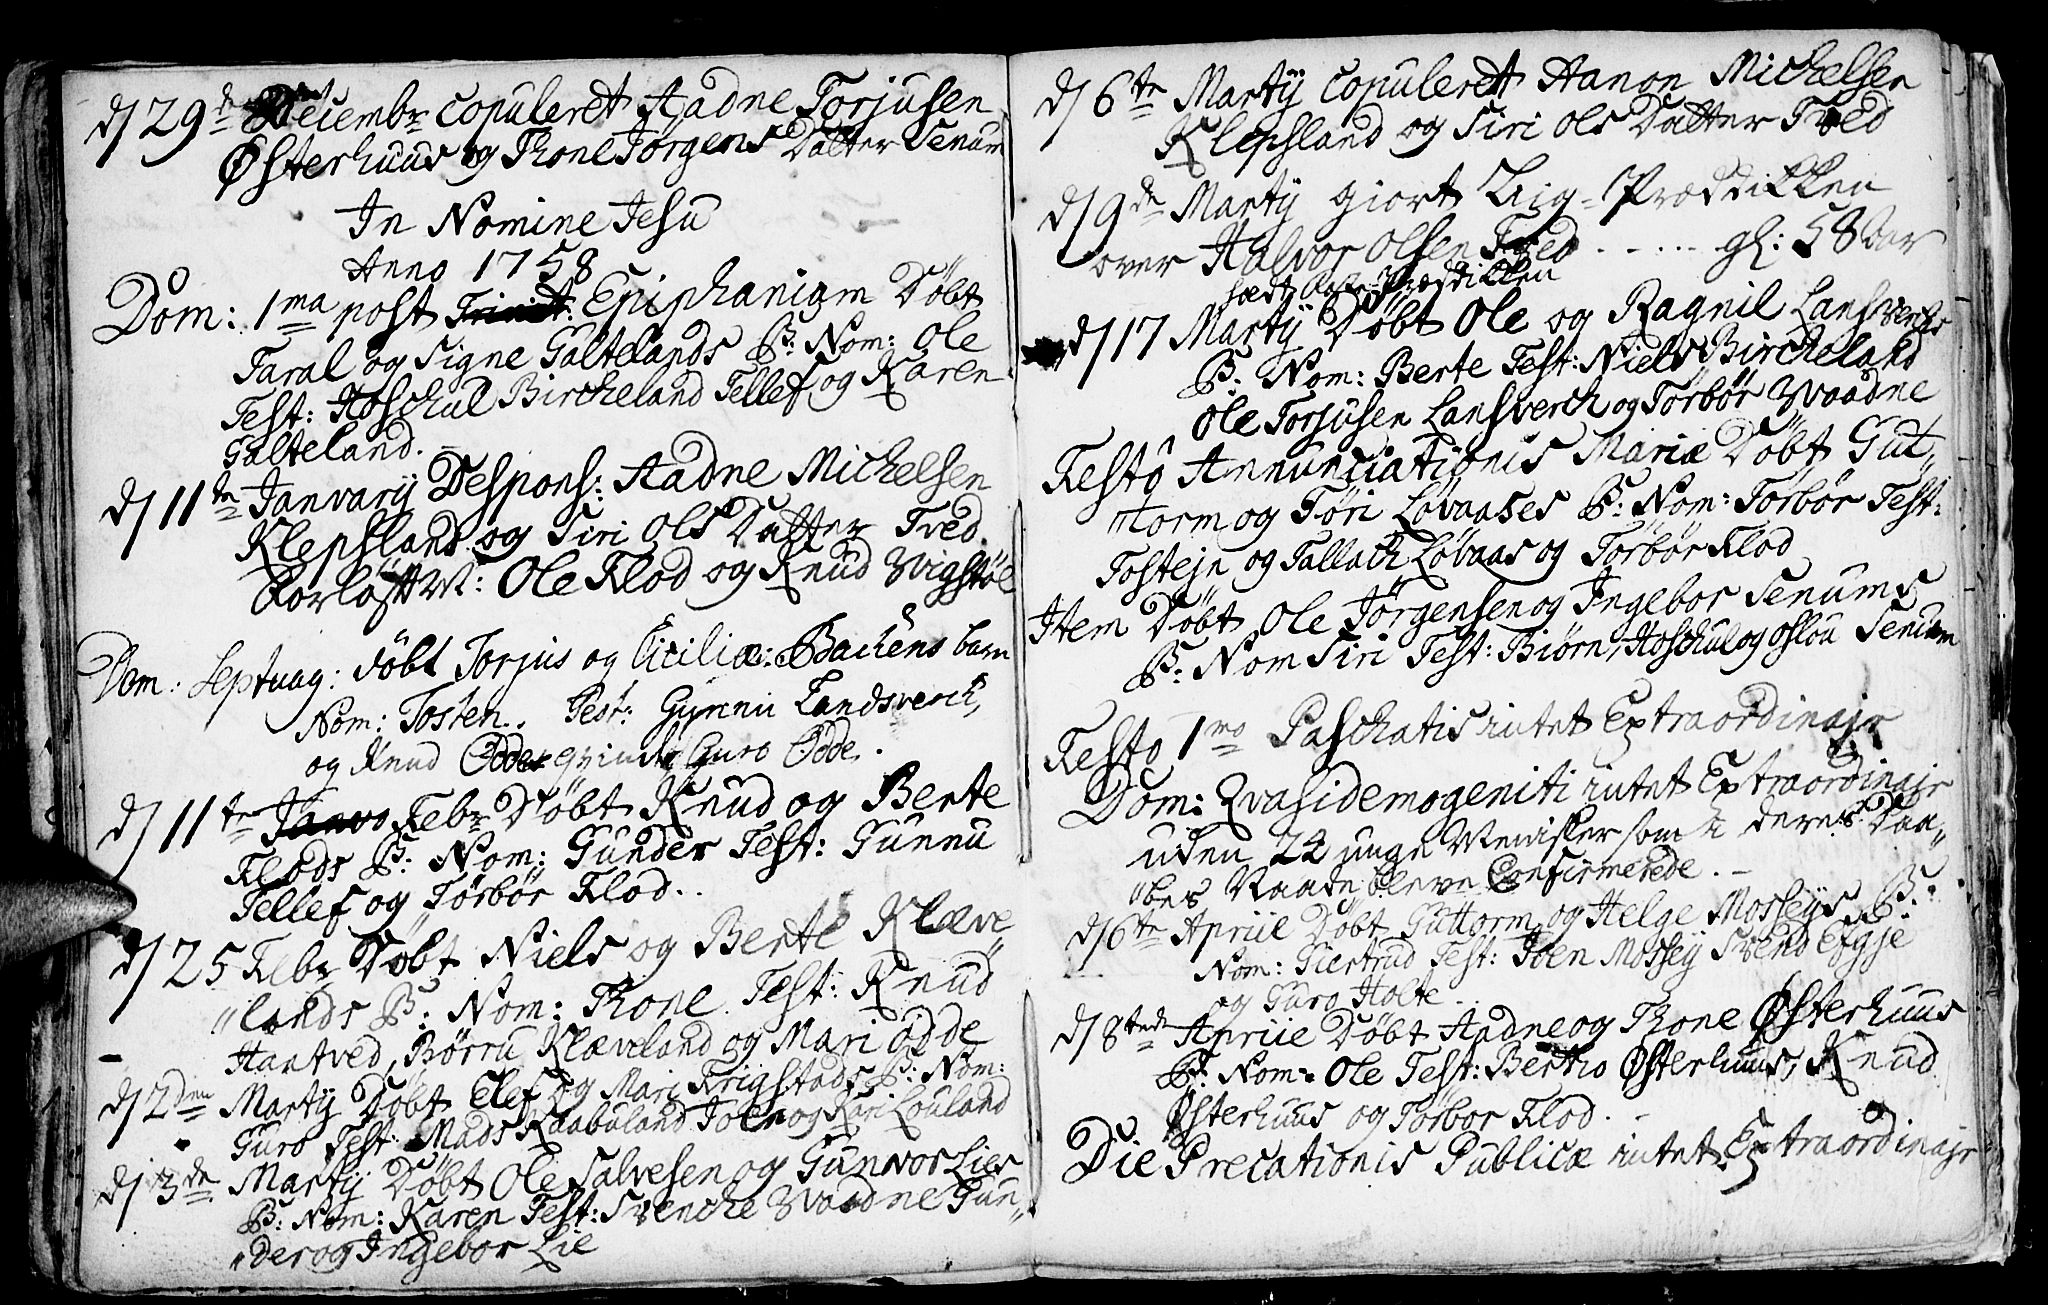 d/ 29de Decembr copuleret Aadne Torjusen
Østerhuus og Thone Jørgens Datter Senum
In Nomine Jesu
Anno 1758
Dom: 1ma post Trinit: Epiphaniam Døbt
Taral og Signe Galtelands B: Nom: Ole
Test: Hoschul Bircheland Tellef og Karen
Galteland.
d/ 11te Janvarij Despons: Aadne Michelsen
Klepsland og Siri Ols Datter Tved.
Forløftt: Ole Flod og Knud Wigstøl
Dom: Septuag: døbt Torjus og Cicilia Bachens barn
Nom: Tosten. Test: Gunnu Landsverch,
og Knud Odde qvinde Guro Odde.
d/ 11te Janvo Febr Døbt Knud og Berte
Flods B: Nom: Gunder Test: Gunnu
Tellef og Torbør Flod.
d/ 25 Febr Døbt Niels og Berte Klæve
"lands B: Nom: Thone Test: Knud
Haatved, Børru Klæveland og Mari Odde
d/ 2den Martij Døbt Elef og Mari Frigstads B: Nom:
Guro Test: Mads Raabuland Joen og Kari Louland
d/ 3de Martij Døbt Ole Salvesen og Gunvor Lies
B: Nom: Karen Test: Svenche Waadne Gun"
"der og Ingebor Lie
d/ 6te Martij Copuleret Aanon Michelsen
Klepsland og Siri Ols Datter Tved
d/ 9de Martij giort Liig-Prædikken
over Halvor Olsen Tved ..... gl: 58 Aar
Prædikken
d/ 17 Martij Døbt Ole og Ragnil Lansverks
B: Nom: Berte Test: Niels Bircheland
Ole Torjusen Lansverch og Torbør Waadne
Festo Annunciationis Mariæ Døbt Gut"
"torm og Tøri Løvaases B: Nom: Torbør Test:
Tostejn og Tallach Løvaas og Torbør Flod
Item Døbt Ole Jørgensen og Ingebor Senums
B: Nom Siri Test: Biørn, Hoschul og Oslou Senum
Festo 1mo Paschatis intet Extraordinair
Dom: Qvasidemogeniti intet Extraordinair
uden 24 unge Menisker som i deres Daa"
"bes Naade bleve Confirmerede.
d/ 6te Apriil Døbt Guttorm og Helge Mosseys B:
Nom: Giertrud Test: Joen Mossey Svend Efgje
og Guro Holte.
d/ 8tende Apriil Døbt Aadne og Thone Østerhuus
B: Nom: Ole Test: Bertho Østerhuus, Knud
Østerhuus og Torbor Flod.
Die Precationis Publicæ intet Extraordinair